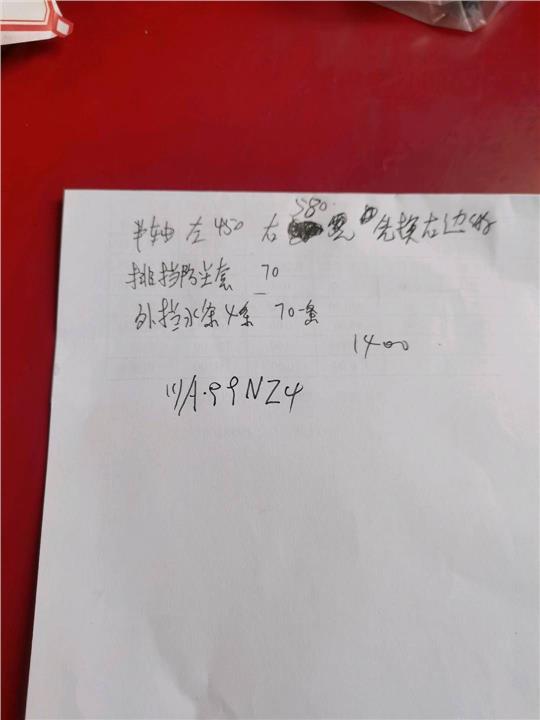 半轴 左450 右 580 先换右边的
排挡防尘套 70
外挡水条4条 70一条
1400
川A·99NZ4